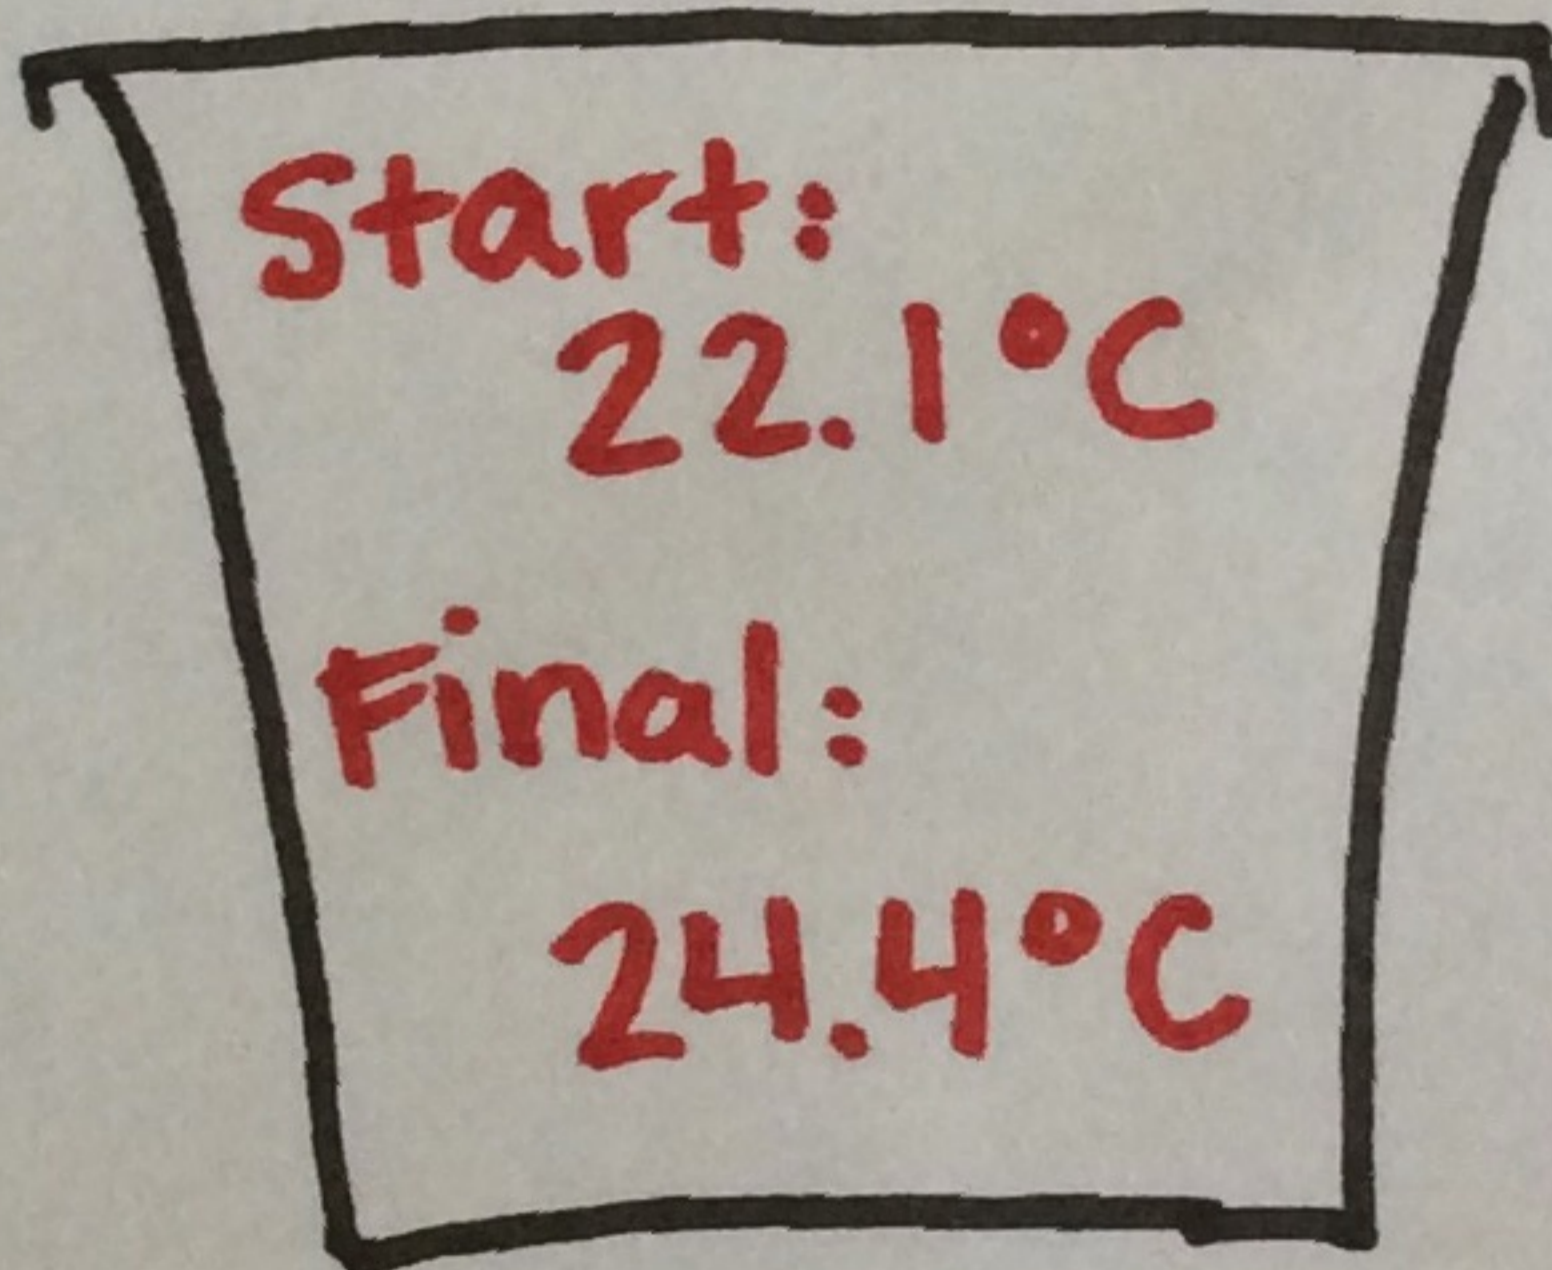 Start:
22.1°C
Final:
24.4°C